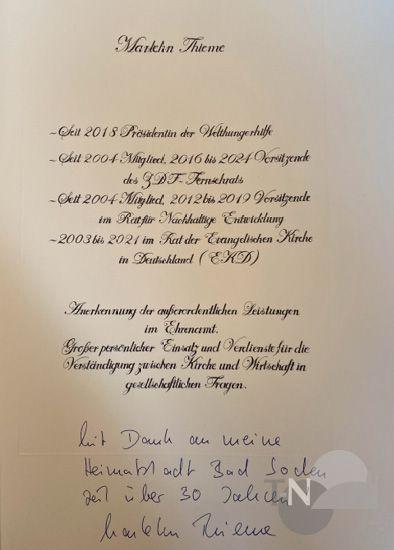 Marlehn Thieme
~Seit 2018 Präsidentin der Welthungerhilfe
~Seit 2004 Mitglied, 2016 bis 2024 Vorsitzende
des ZDF-Fernsehrats
~Seit 2004 Mitglied, 2012 bis 2019 Vorsitzende
im Rat für Nachhaltige Entwicklung
~2003 bis 2021 im Rat der Evangelischen Kirche
in Deutschland (EKD)
Anerkennung der außerordentlichen Leistungen
im Ehrenamt.
Großer persönlicher Einsatz und Verdienste für die
Verständigung zwischen Kirche und Wirtschaft in
gesellschaftlichen Fragen.
Mit Dank an meine
Heimatstadt Bad Soden
seit über 30 Jahren
Marlehn Thieme
TN